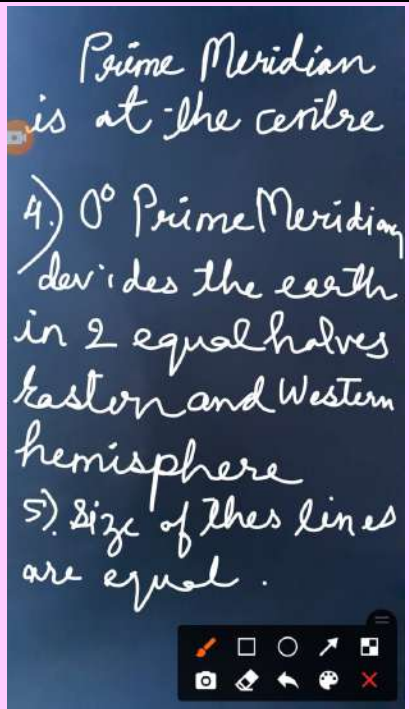 Prime Meridian
is at the centre
4.) 0° Prime Meridian
devides the earth
in 2 equal halves
Eastern and Western
hemisphere
5). Size of thes lines
are equal.